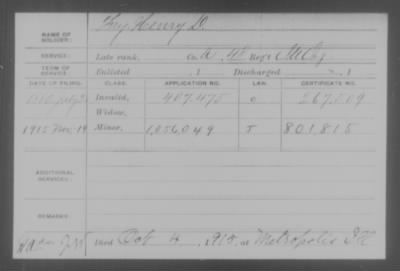 NAME OF SOLDIER: Fry, Henry D.
SERVICE: Late rank, Co. A, 48 Reg't
TERM OF SERVICE: Enlisted , 1 Discharged , 1
DATE OF FILING. CLASS. APPLICATION NO. LAW. CERTIFICATE NO.
Invalid, 407,475
Widow,
1915 Nov. 19 Minor, 1,056,049 T 801,815
ADDITIONAL SERVICES:
REMARKS:
Died Oct 4, 1915, at Metropolis Ill